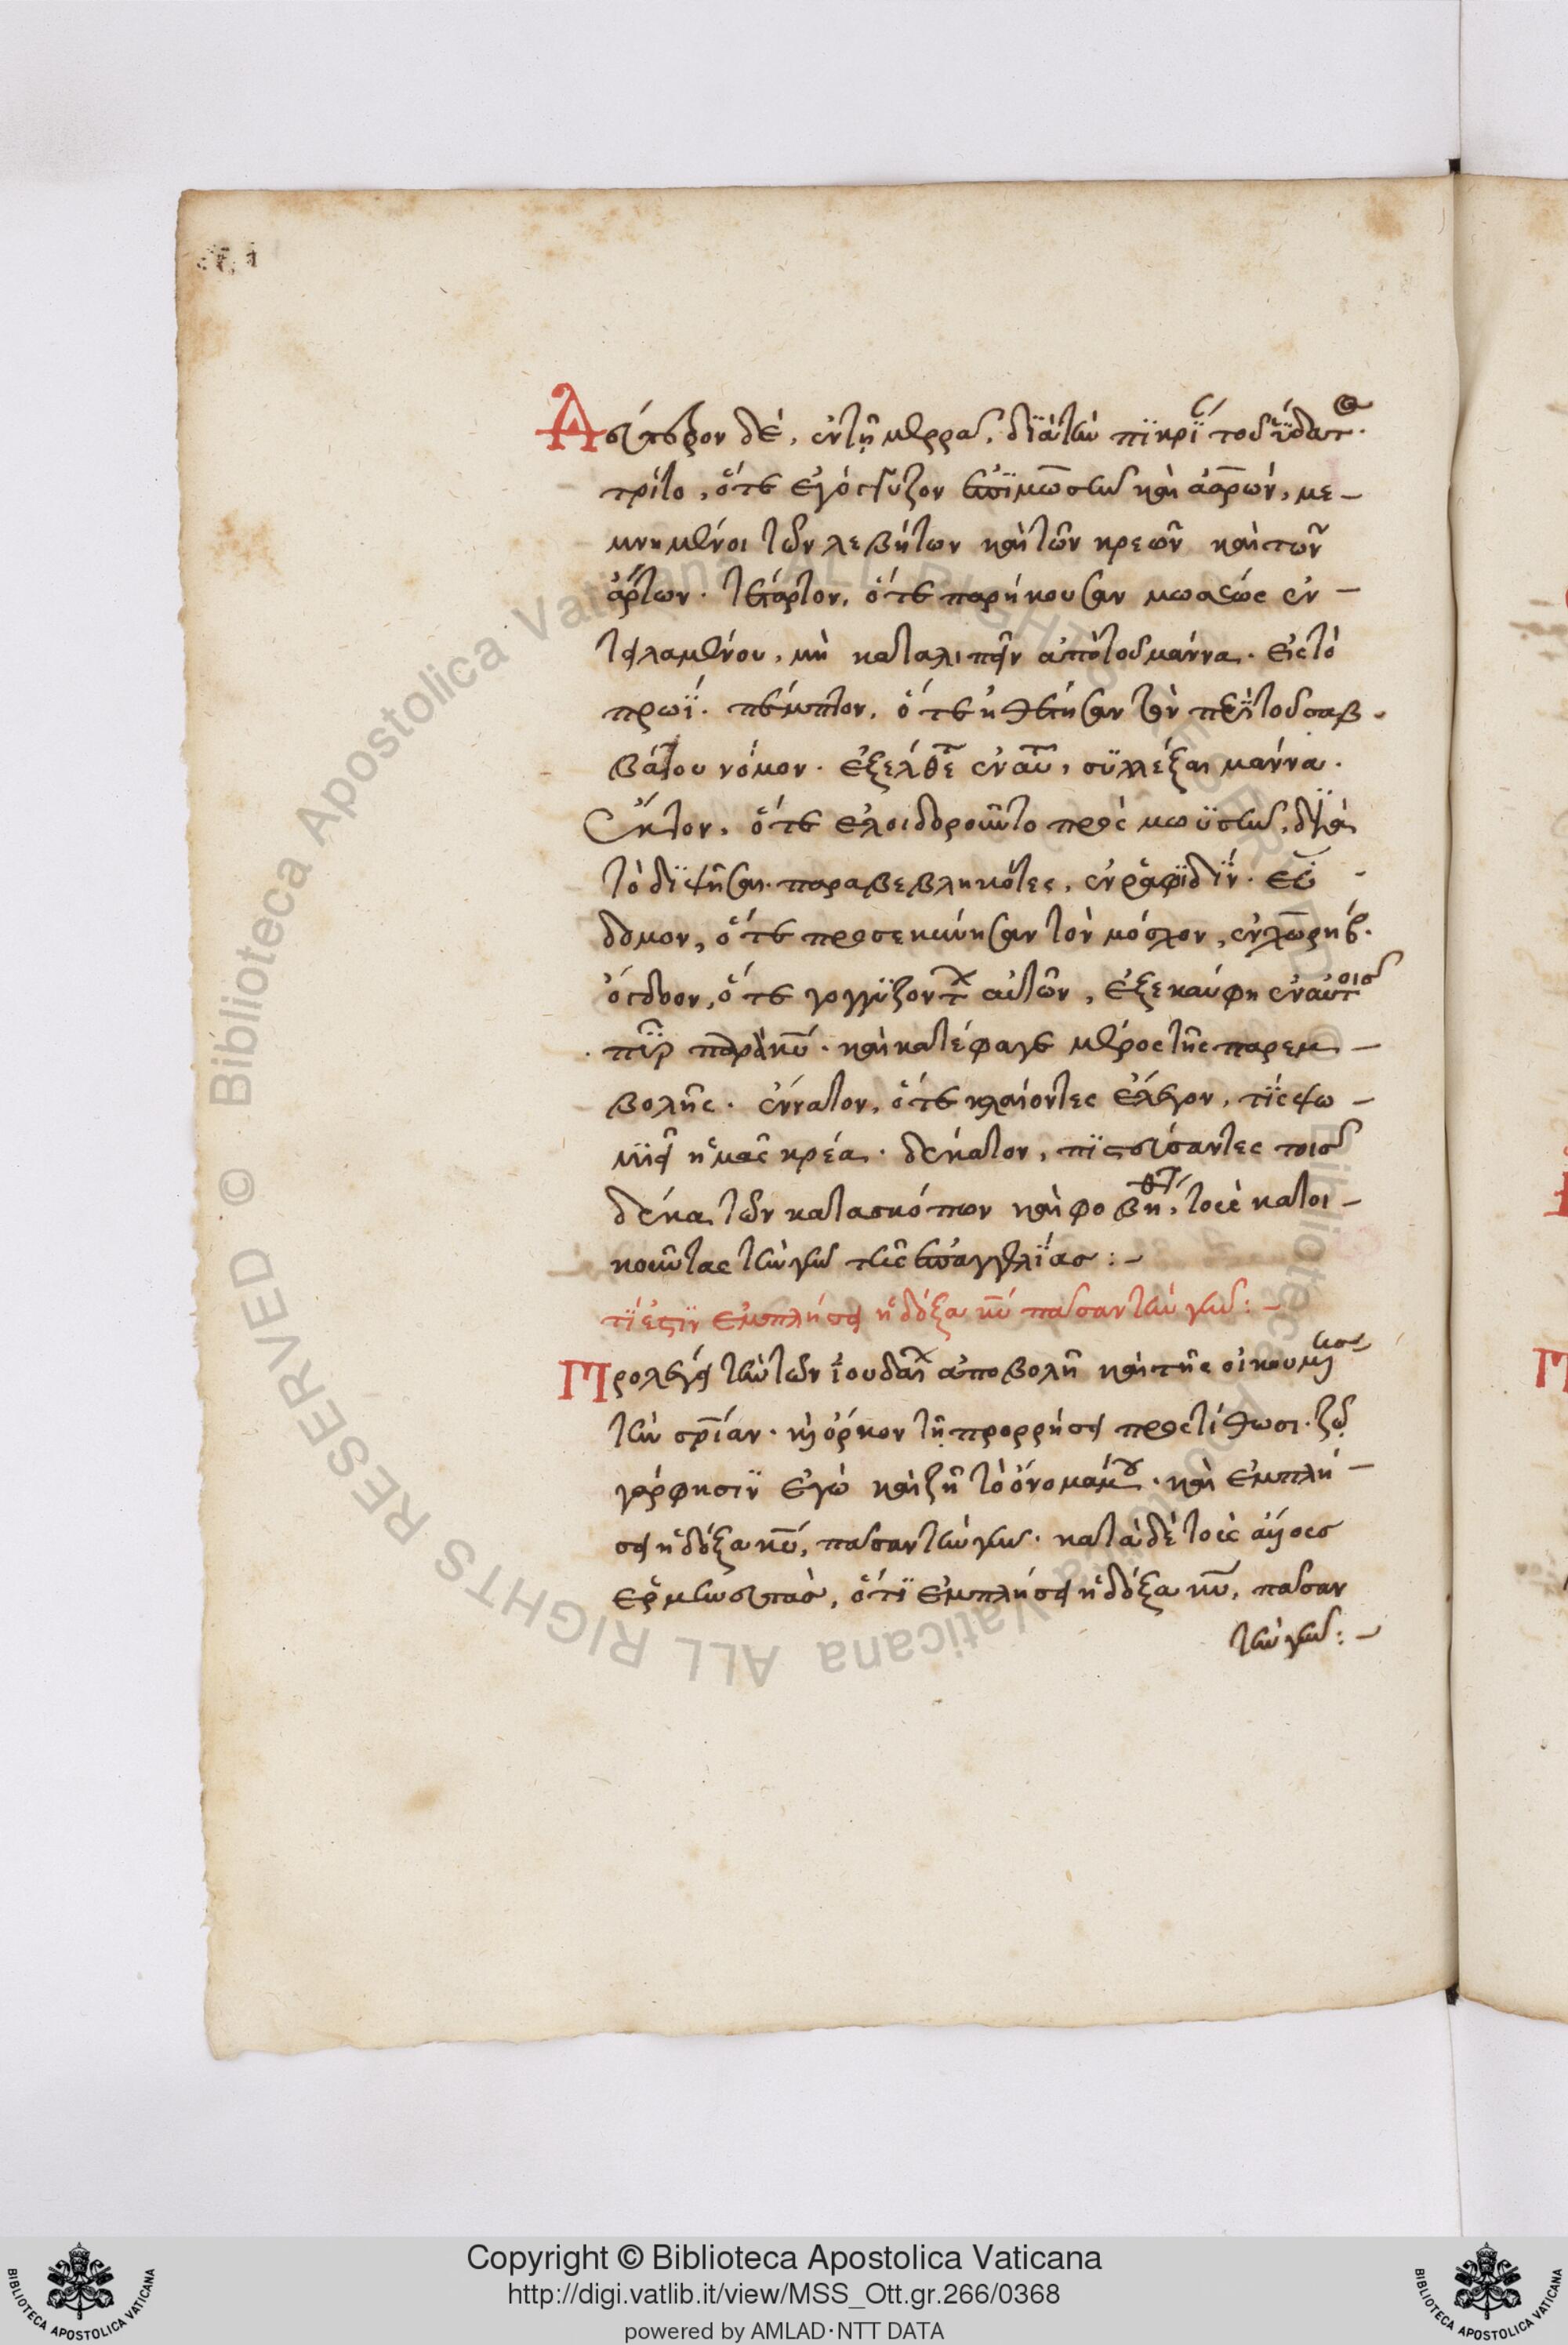 Δεύτερον δὲ, ἐν τῇ μερρᾷ, διὰ τὴν πικρί τοῦ ὕδατ
τρίτο, ὅτε ἐγόγγυζον ἐπὶ μωσῆν καὶ ἀαρών, με-
μνημένοι τῶν λεβήτων καὶ τῶν κρεῶν καὶ τῶν
ἄρτων. τέταρτον, ὅτε παρήκουσαν μωσέως ἐν-
τειλαμένου, μὴ καταλιπεῖν ἀπὸ τοῦ μάννα. εἰς τὸ
πρωΐ. πέμπτον, ὅτε ἠθέτησαν τὸν περὶ τοῦ σαβ
βάτου νόμον. ἐξελθε ἐν αυ, συλλέξαι μάννα.
Ἕκτον, ὅτε ἐλοιδοροῦντο πρὸς μωϋσῆν, διὰ
τὸ διψῆσαι. παραβεβληκότες, ἐν ῥαφιδίν. ἕβ
δομον, ὅτε προσεκύνησαν τὸν μόσχον, ἐν χωρήβ.
ὄγδοον, ὅτε γογγυζοντ αὐτῶν, ἐξεκαύθη ἐν αὐτοῖς
πῦρ παρὰ κυ. καὶ κατέφαγε μέρος τῆς παρεμ-
βολῆς. ἔννατον, ὅτε κλαίοντες ἔλεγον, τίς ψω-
μιεῖ ἡμᾶς κρέα. δέκατον, πιστεύσαντες τοῖς
δέκα τῶν κατασκόπων καὶ φοβηθτ, τοὺς κατοι-
κοῦντας τὴν γῆν τῆς ἐπαγγελίας:-
τί ἐστιν ἐμπλήσει ἡ δόξα κυ πᾶσαν τὴν γῆν:-
Προλέγει τὴν τῶν ἰουδαι ἀποβολὴ καὶ τῆς οἰκουμένης
τὴν σριαν. καὶ ὅρκον τῇ προρρήσει προστίθωσι. ζῶ
γάρ φησιν ἐγὼ καὶ ζῇ τὸ ὄνομά μου. καὶ ἐμπλή-
σει ἡ δόξα κυ, πᾶσαν τὴν γῆν. κατὰ δὲ τοὺς ἄλλους
ἑρμηνευτὰς, ὅτι ἐμπλήσει ἡ δόξα κυ, πᾶσαν
τὴν γῆν:-
Copyright © Biblioteca Apostolica Vaticana
http://digi.vatlib.it/view/MSS_Ott.gr.266/0368
powered by AMLAD·NTT DATA